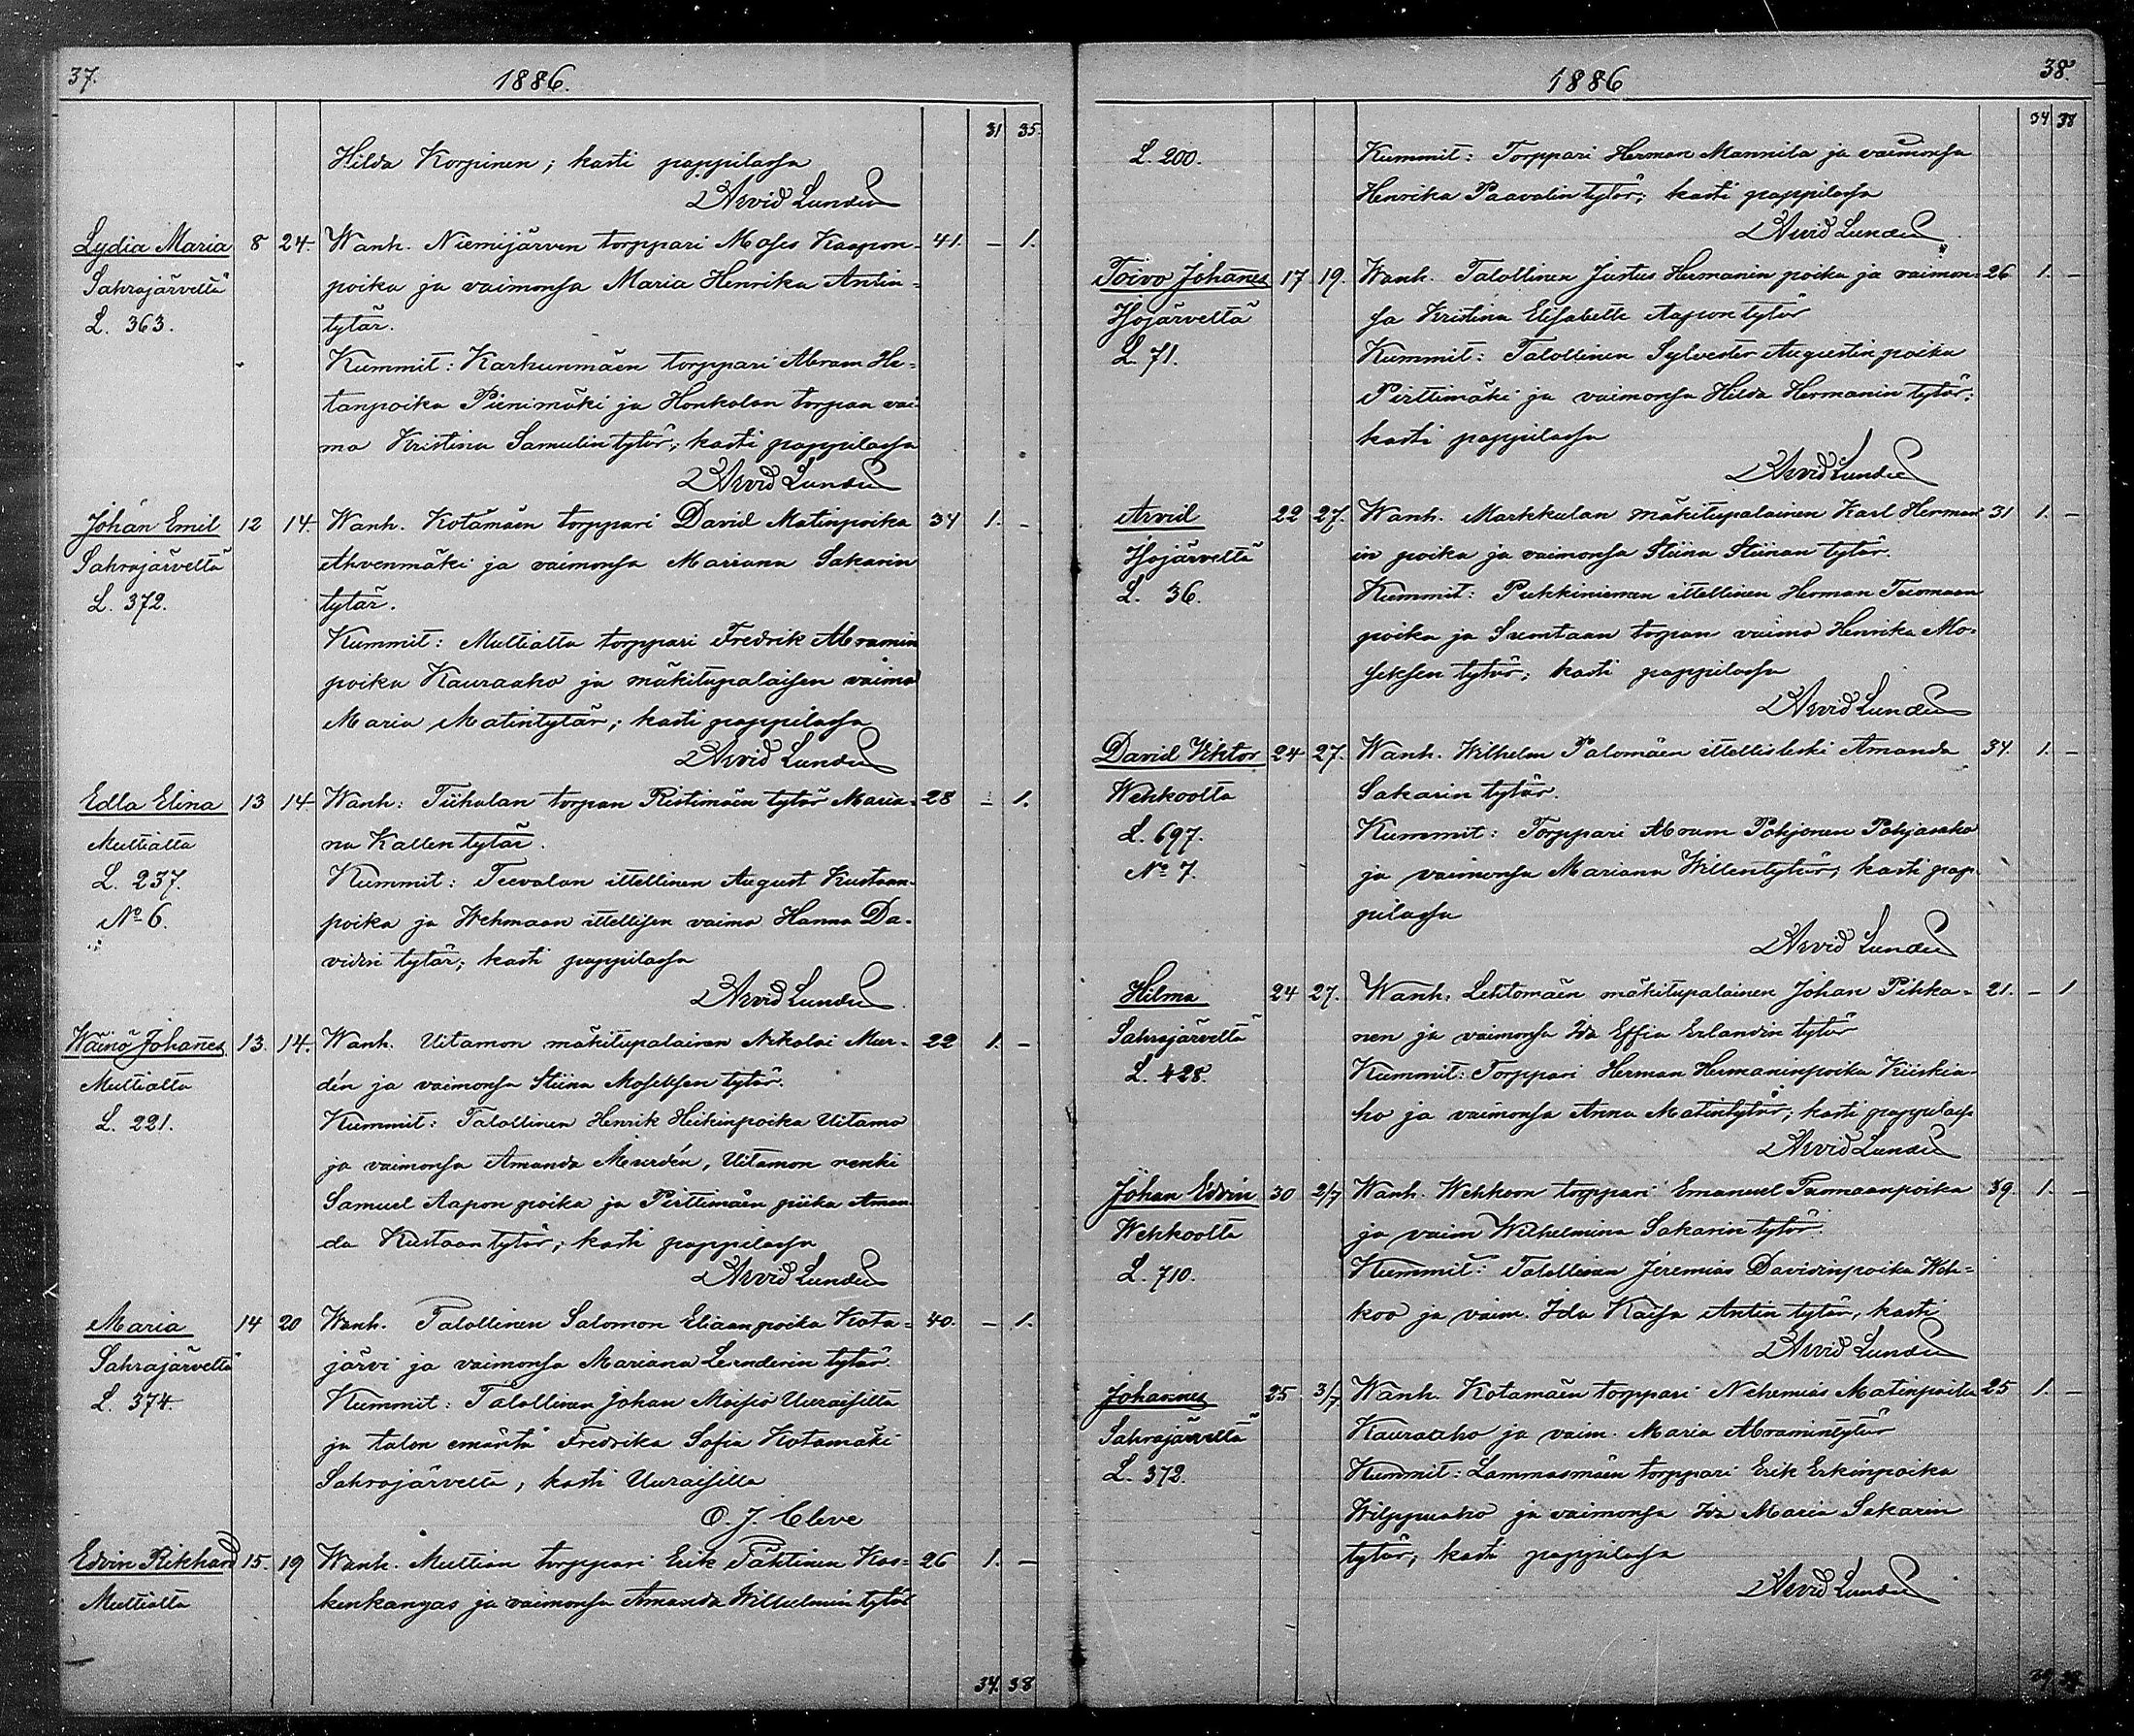 37.
1886.
31 35.
Hilda Korpinen; kasti pappilassa
Arvid Lundén
Lydia Maria 8 24. Wanh. Niemijärven torppari Moses Kaapon- 41. – 1.
Sahrajärveltä poika ja vaimonsa Maria Henrika Antin-
L. 363. tytär.
Kummit: Karhunmäen torppari Abram He-
tanpoika Pienimäki ja Honkolan torpan vai-
mo Kristina Samulin tytär; kasti pappilassa
Arvid Lundén
Johan Emil 12 14. Wanh. Kotamäen torppari David Matinpoika 34 1. –
Sahrajärveltä Ahvenmäki ja vaimonsa Mariana Sakarin
L. 372. tytär.
Kummit: Multialta torppari Fredrik Abramin
poika Kauraaho ja mäkitupalaisen vaimo
Maria Matintytär; kasti pappilassa
Arvid Lundén
Edla Elina 13 14. Wanh: Tiihalan torpan Ristimäen tytär Maria- 28 – 1.
Multialta na Kallen tytär.
L. 237. Kummit: Teevalan ittellinen August Kustaan-
No 6. poika ja Wehmaan ittellisen vaimo Hanna Da-
vidin tytär; kasti pappilassa
Arvid Lundén
Wäinö Johanes 13. 14. Wanh. Uitamon mäkitupalainen Nikolai Mur- 22 1. –
Multialta dén ja vaimonsa Stiina Moseksen tytär.
L. 221. Kummit: Talollinen Henrik Heikinpoika Uitamo
ja vaimonsa Amanda Murdén, Uitamon renki
Samuel Aapon poika ja Pirttimäen piika Aman-
da Kustaan tytär; kasti pappilassa
Arvid Lundén
Maria 14 20 Wanh. Talollinen Salomon Eliaanpoika Kota- 40. – 1.
Sahrajärveltä järvi ja vaimonsa Mariana Leanderin tytär.
L. 374. Kummit: Talollinen Johan Moisio Uuraisilta
ja talon emäntä Fredrika Sofia Kotamäki
Sahrajärveltä, kasti Uuraisilla
O. J. Cleve
Edvin Rikhard 15. 19 Wanh. Multian torppari Erik Tähtinen Kos- 26 1. –
Multialta kenkangas ja vaimonsa Amanda Wilhelmin tytär
34. 38
1886
38.
34 38
L. 200. Kummit: Torppari Herman Mannila ja vaimonsa
Henrika Paavalin tytär; kasti pappilassa
Arvid Lundén
Toivo Johanes 17 19. Wanh. Talollinen Justus Hermanin poika ja vaimon- 26 1. –
Isojärveltä sa Kristina Elisabetta Aapon tytär
L. 71. Kummit: Talollinen Sylvester Augustin poika
Pirttimäki ja vaimonsa Hilda Hermanin tytär;
kasti pappilassa
Arvid Lundén
Arvid 22 27. Wanh. Markkulan mäkitupalainen Karl Herman- 31 1. –
Isojärveltä in poika ja vaimonsa Stiina Stiinan tytär.
L. 36. Kummit: Pukkiniemen ittellinen Herman Tuomaan
poika ja Suontaan torpan vaimo Henrika Mo-
seksen tytär; kasti pappilassa
Arvid Lundén
David Viktor 24 27. Wanh. Wilhelm Palomäen ittellisleski Amanda 34. 1. –
Wehkoolta Sakarin tytär.
L. 697. Kummit: Torppari Abram Pohjonen Pohjasaho
No 7. ja vaimonsa Mariana Willentytär; kasti pap-
pilassa
Arvid Lundén
Hilma 24 27. Wanh: Lehtomäen mäkitupalainen Johan Pihka- 21. – 1
Sahrajärveltä nen ja vaimonsa Ida Effia Erlandin tytär
L. 428. Kummit: Torppari Herman Hermaninpoika Kiiskia-
ho ja vaimonsa Anna Matintytär; kasti pappilassa
Arvid Lundén
Johan Edvin 30 2/7 Wanh. Wehkoon torppari Emanuel Tuomaanpoika 39. 1. –
Wehkoolta ja vaim Wilhelmina Sakarin tytär.
L. 710. Kummit: Talollinen Jeremias Davidinpoika Weh-
koo ja vaim. Ida Kaisa Antin tytär, kasti
Arvid Lundén
Johannes 25 3/7 Wanh. Kotamäen torppari Nehemias Matinpoika 25 1. –
Sahrajärveltä Kauraaho ja vaim. Maria Abramintytär
L. 372. Kummit: Lammasmäen torppari Erik Erkinpoika
Wilppuaho ja vaimonsa Ida Maria Sakarin
tytär; kasti pappilassa
Arvid Lundén